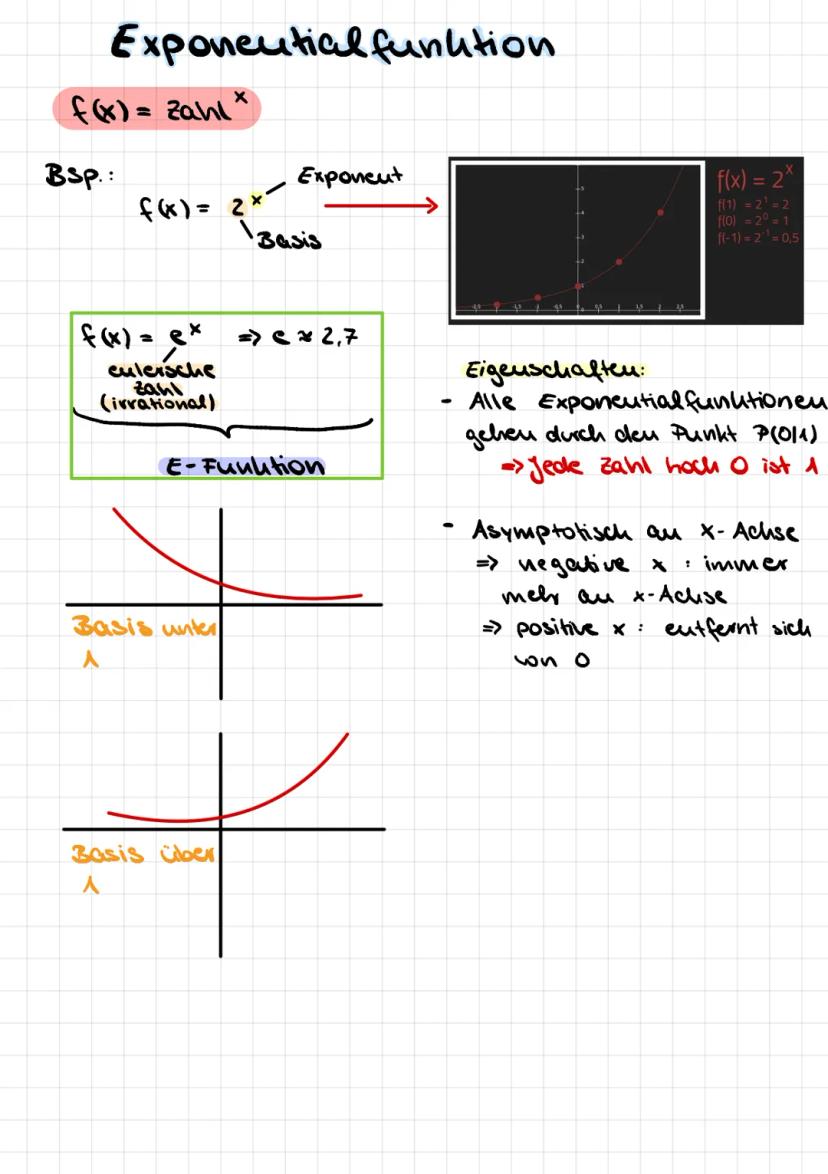 Exponentialfunktion
f(x) = Zahl^x
Bsp.:
Exponent
f(x) = 2^x
Basis
f(x) = 2^x
f(1) = 2^1 = 2
f(0) = 2^0 = 1
f(-1) = 2^-1 = 0,5
f(x) = e^x => e ≈ 2,7
eulersche
Zahl
(irrational)
E-Funktion
Eigenschaften:
- Alle Exponentialfunktionen
gehen durch den Punkt P(0|1)
=> Jede Zahl hoch 0 ist 1
- Asymptotisch an x-Achse
=> negative x : immer
mehr an x-Achse
=> positive x : entfernt sich
von 0
Basis unter
1
Basis über
1